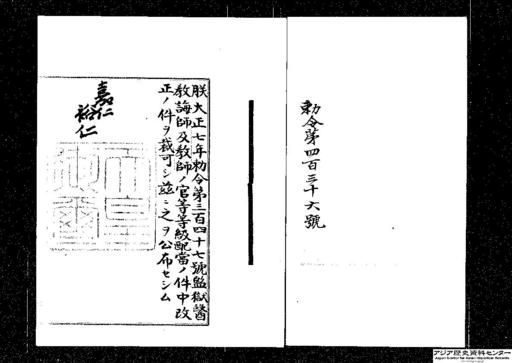 勅令第四百三十六號
朕大正七年勅令第三百四十七號監獄醫
教誨師及教師ノ官等等級配當ノ件中改
正ノ件ヲ裁可シ玆ニ之ヲ公布セシム
嘉仁
裕仁
天皇
御璽
アジア歴史資料センター
Japan Center for Asian Historical Records